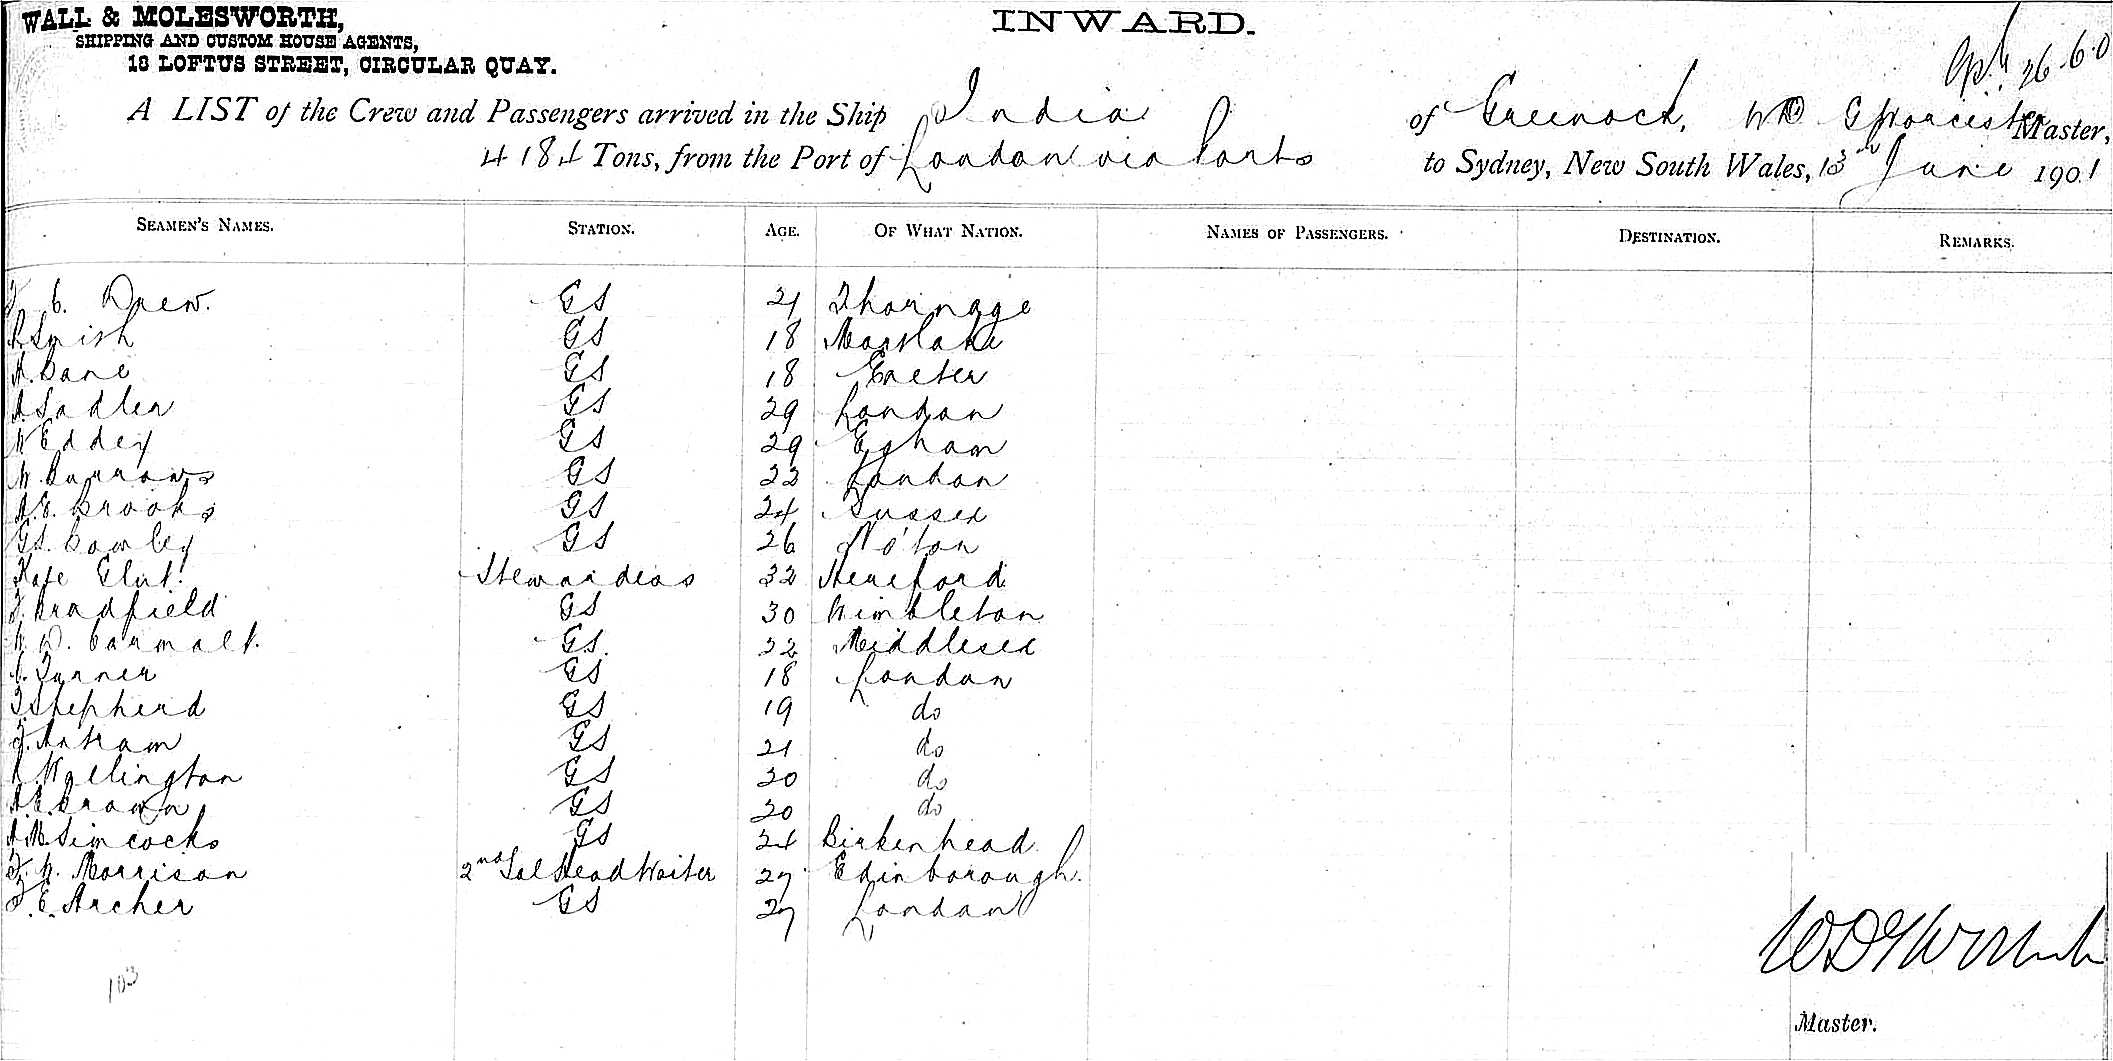 WALL & MOLESWORTH,
SHIPPING AND CUSTOM HOUSE AGENTS,
13 LOFTUS STREET, CIRCULAR QUAY.
INWARD.
A LIST of the Crew and Passengers arrived in the Ship India of Greenock, WD G Worcester Master,
4184 Tons, from the Port of London via Ports to Sydney, New South Wales, 13th June 1901
SEAMEN'S NAMES. STATION. AGE. OF WHAT NATION. NAMES OF PASSENGERS. DESTINATION. REMARKS.
C. Drew. GS 21 Thornage
GS 18 Mortlake
A. Dane GS 18 Exeter
A Sadler GS 29 London
W Eddey GS 29 Egham
W. Burrows GS 22 London
A.E. Brooks GS 24 Sussex
GS. Cowley GS 26 No'ton
Kate Stewardess 32 Hereford
F. Bradfield GS 30 Wimbleton
W D. Carmalt. GS. 22 Middlesex
C. Turner GS 18 London
T Shepherd GS 19 do
F. Antram GS 21 do
Wellington GS 20 do
A.E. Brown GS 20 do
A M Simcocks GS 24 Birkenhead
F. W. Morrison 2nd Sal Head Waiter 27 Edinborough.
F. E. Archer GS 27 London
103
Master.